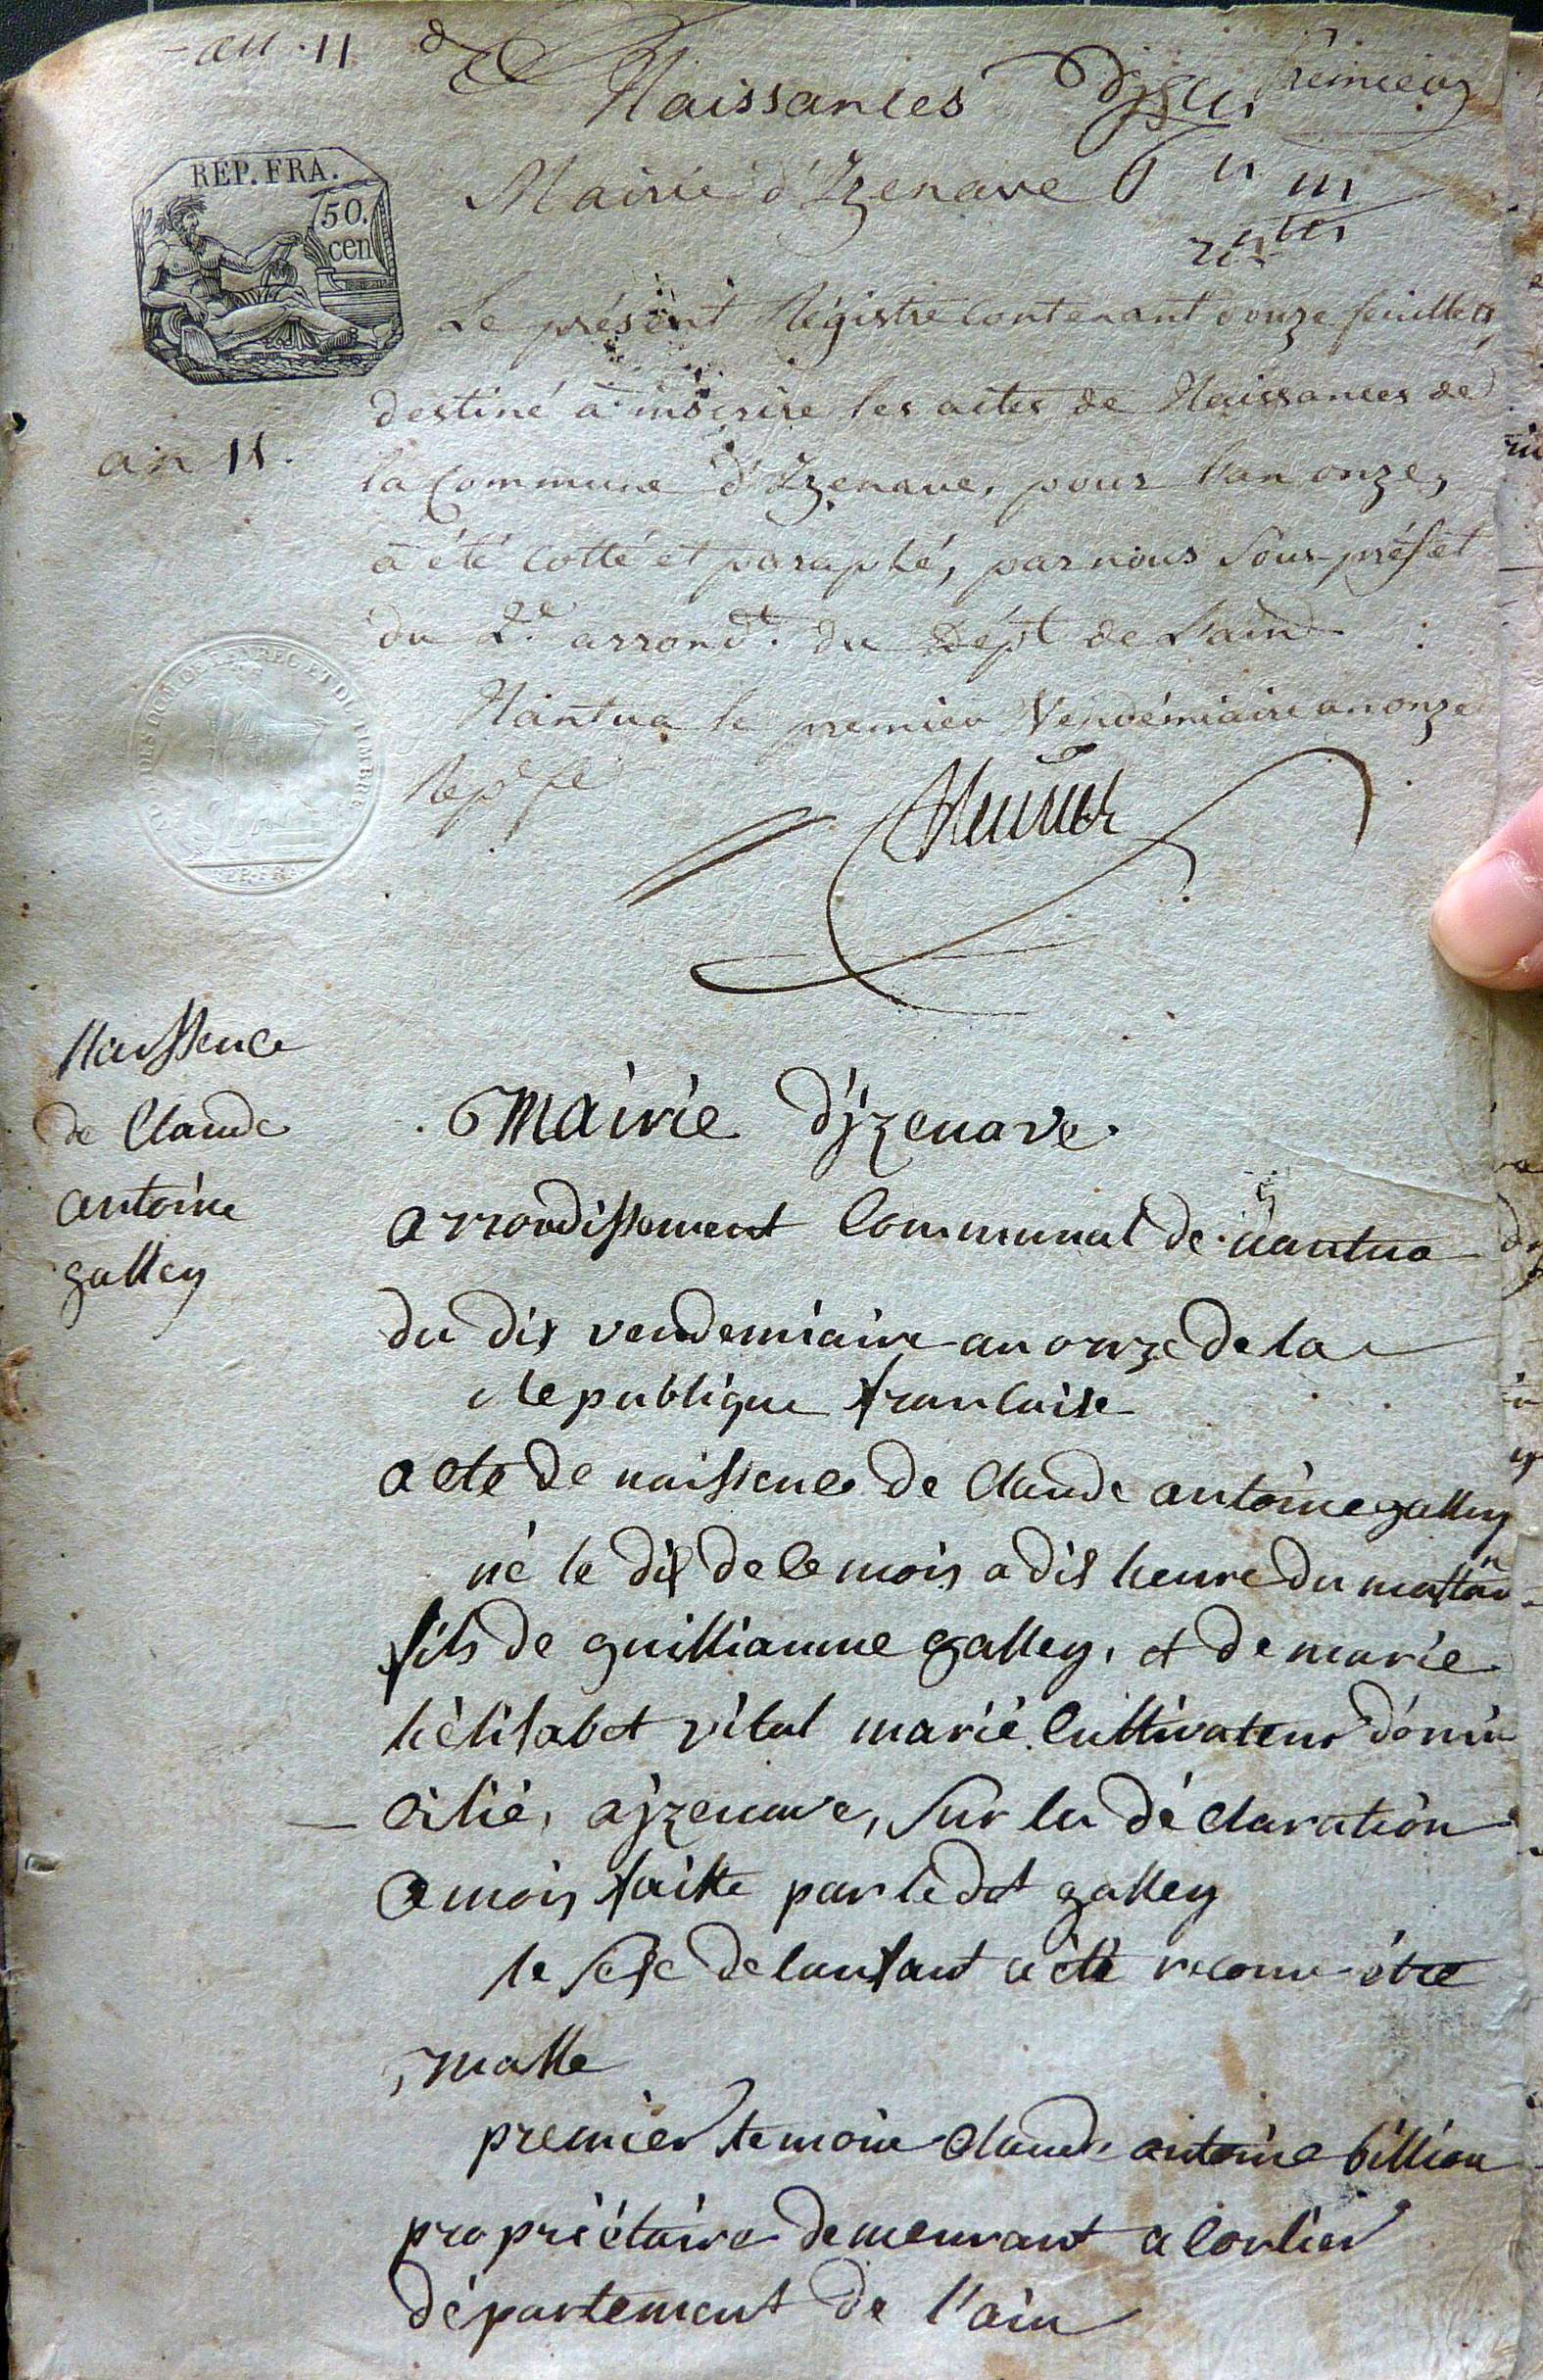 an 11
Naissances
premier
Mairie d'Izenave
REP. FRA.
50.
cen
Le présent Régistre contenant douze feuillets,
destiné à inscrire les actes de Naissances de
an 11.
la Commune d'Izenave, pour l'an onze,
a été cotté et paraphé, par nous Sous-préfet
du 2e arrondt. du Dépt de l'ain
Nantua le premier Vendémiaire an onze
Rep.e fe
REP. FRA.
Naissence
de Claude
antoine
galley
Mairie d'jzenave
arrondissement Communal de nantua
du dix vendemiaire an onze de la
Republique francaise
acte de naissence de Claude antoine galley
né le dix de ce mois a dix heure du mattin
fils de guilliaume galley, et de marie
hélisabet vital marié Cultivateur domi
cilié, a jzenave, sur la déclaration
a mois faitte par ledt galley
le sexe de lanfant a été reconu être
malle
premier temoin Claude antoine billion
propriétaire demeurant a Corlier
département de l'ain